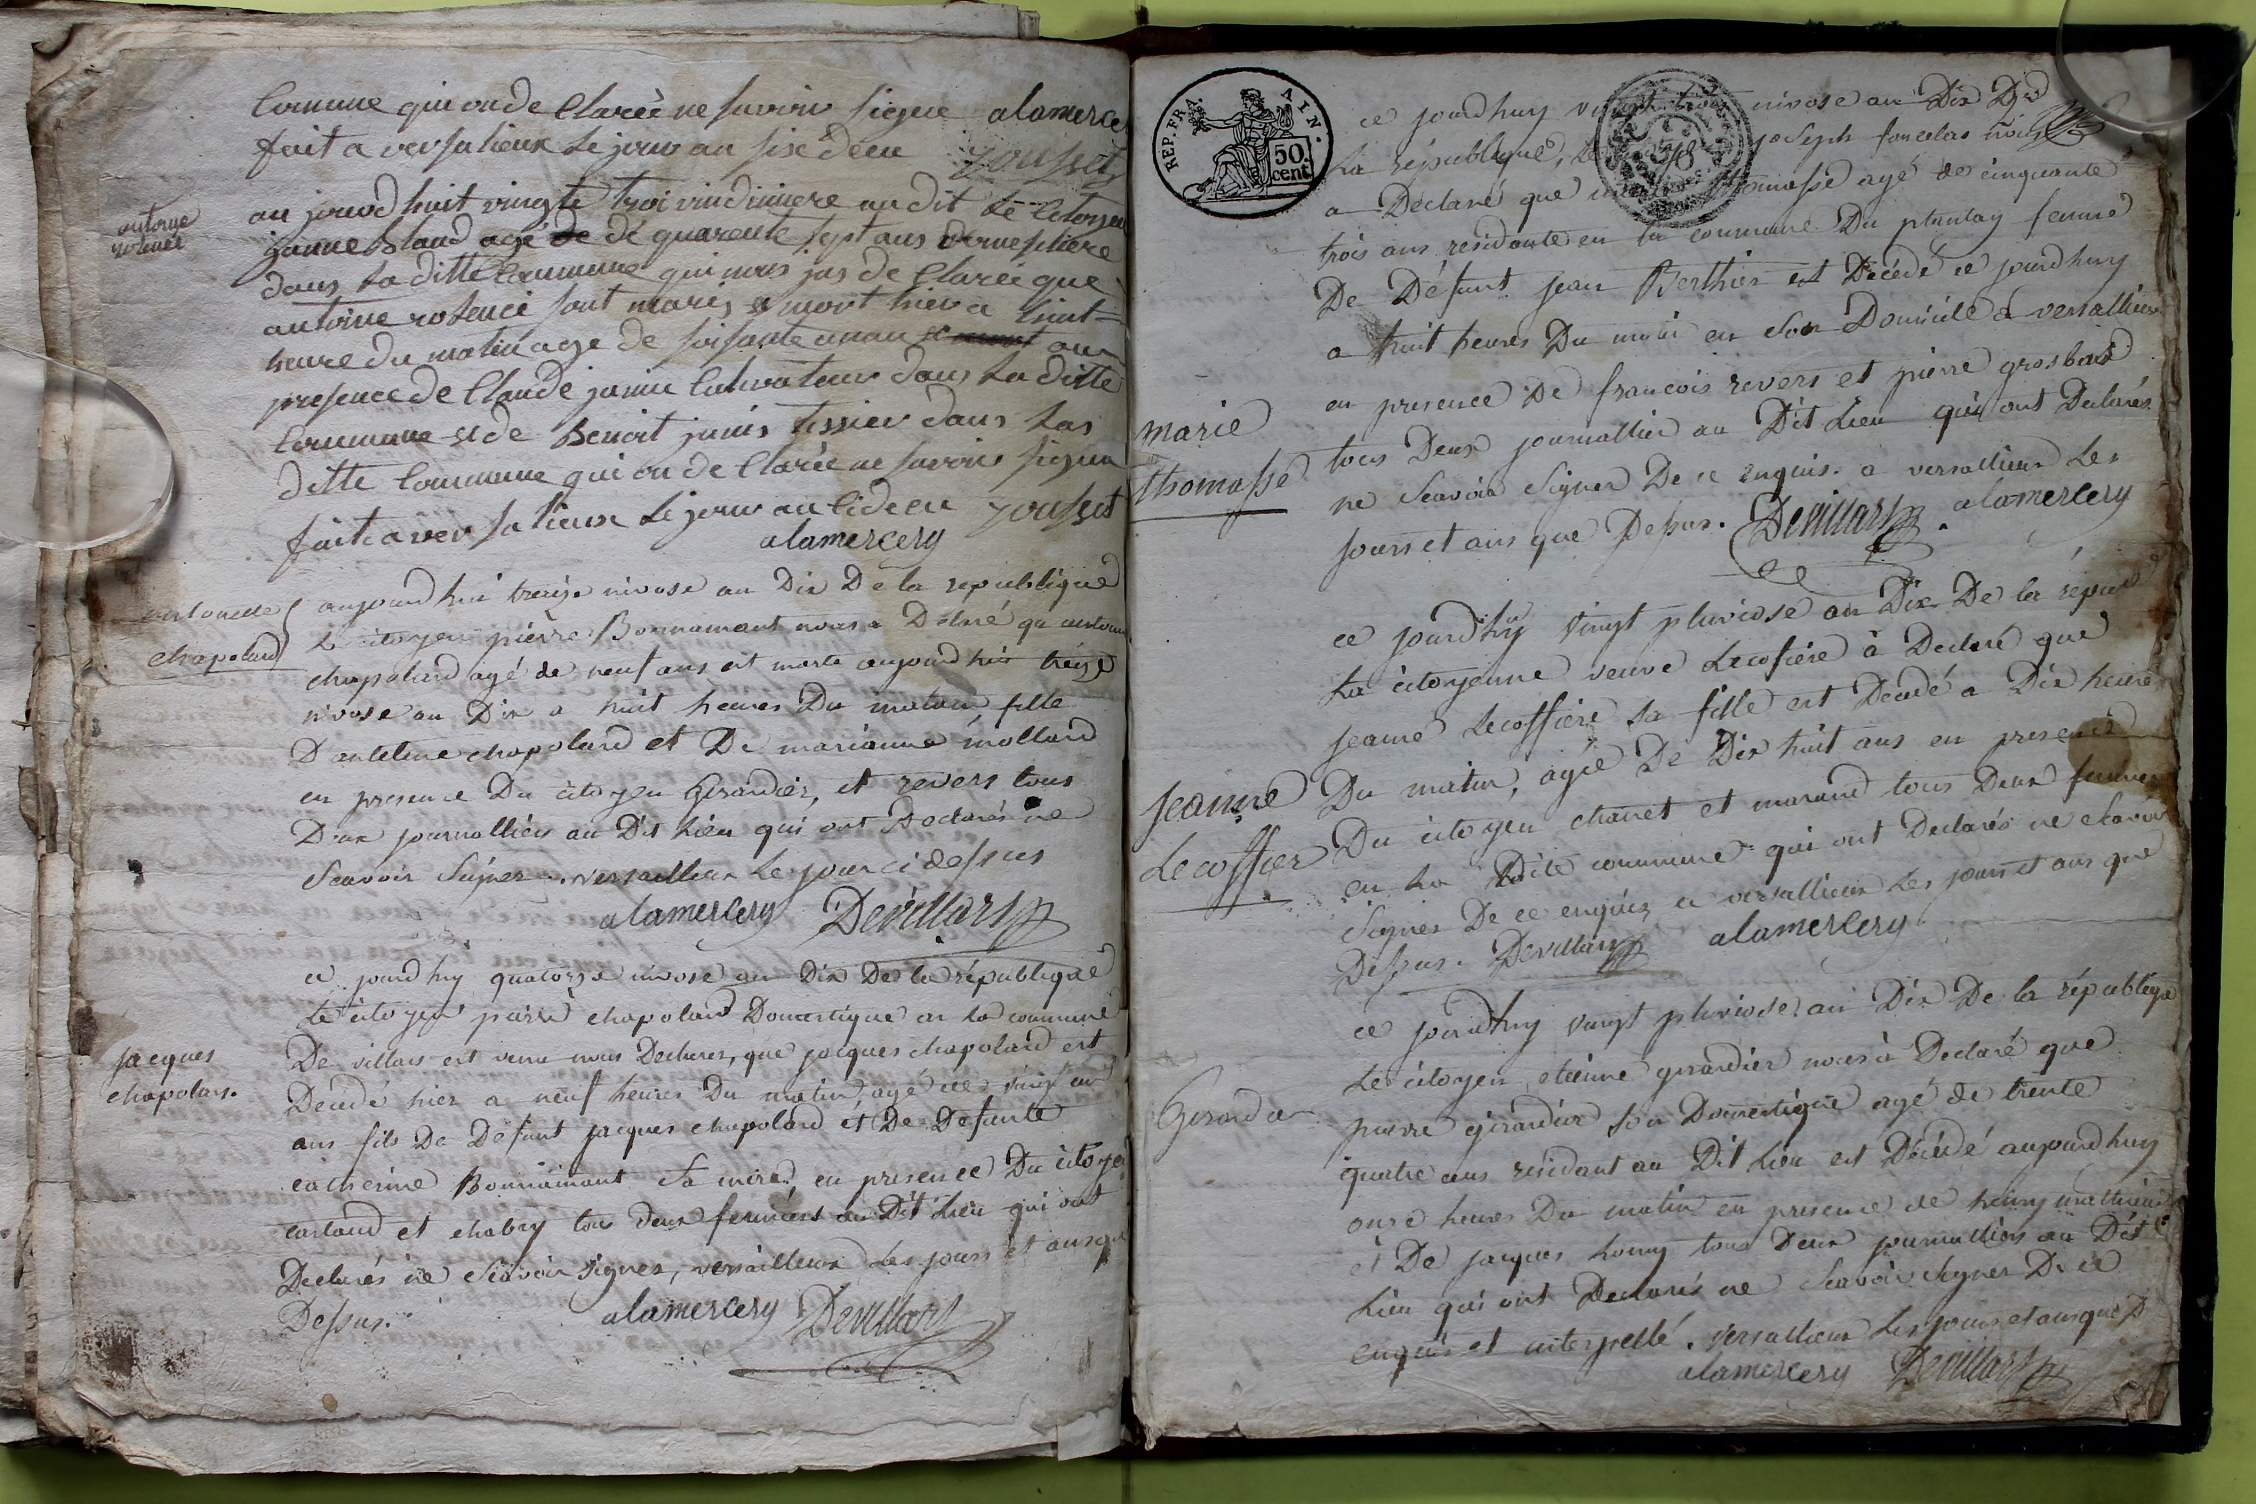 Comune qui on de Clarée ne savoir signe alamerce
fait a versalieux le jour an sisédeu jousset
antoine
rolencé
au jourdhuit vingte troi vindimiere an dit le Citoyen
janne bland agé de de quarente sept ans
dans la ditte Commune qui nous jas de Clarée que
antoine rolencé sont maris mort hier a huit
heure du matin age de soisante an
presence de Claude janin Cultivateur dans la ditte
Commune et de Benoit janin tissier dans las
ditte Commune qui on de Clarée ne savoir signer
fait a versalieux le jour an sidedeu jousset
alamercery
antonette
chapolard
aujourdhui treize nivose an Dix De la republique
le citoyen pierre Bonnamant nous a Déclaré qu antoin
chapolard agé de neuf ans est morte aujourdhui treize
nivose an Dix a huit heures Du matin fille
D antelme chapolard et De marianne mollard
en presence Du citoyen Girardier, et revers tous
Deux journalliers au Dit Lieu qui ont Declarés ne
Scavoir Signer. versaillieux le jour ci dessus
alamercery Devillars
jacques
chapolars.
ce jourdhy quatorze nivose an Dix De la république
le citoyen pierre chapolard Domestique en la commune
De villars est venu nous Declarer, que jacques chapolard est
Decedé hier a neuf heures Du matin, agé de vingt un
ans fils De Défunt jacques chapolard et De Defunte
catherine Bonnamant Sa mere, en presence Du citoyen
carland et chabry tous deux fermiers au Dit Lieu qui ont
Declarés ne Scavoir signer, versailleux les jours et ans que
Dessus. alamercery Devillars
REP. FRA. AIN.
50
cent.
ce jourdhuy vingt trois nivose an Dix De
La république, le joseph
a Déclaré que marie thomasse agé de cinquante
trois ans residante en la commune Du plantay femme
De Défunt jean Berthier est Décédé ce jourdhuy
a huit heures Du matin en Son Domicile a versallieux
en presence De francois revers et pierre grosbois
marie
thomasse
tous Deux journallier au Dit Lieu qui ont Declarés
ne Scavoir Signer De ce enquis. a versallieux Les
jours et ans que Dessus. Devillars. alamercery
ce jourdhy vingt pluviose an Dix De la répub
La citoyenne veuve Lecofiere à Declaré que
jeanne Lecoffiere sa fille est Décedé a Dix heures
jeanne
Lecoffier
Du matin, agée De Dix huit ans en presence
Du citoyen charret et marand tous Deux fermier
en La Dite commune qui ont Declarés ne Scavoir
Signer De ce enquis, a versallieux Les jours et ans que
Dessus. Devillars alamercery
ce jourdhuy vingt pluviose an Dix De la république
Le citoyen etienne girardier nous à Declaré que
Girardier
pierre girardier Son Domestique agé de trente
quatre ans residant au Dit Lieu est Décédé aujourdhuy
onze heures Du matin en presence de henry mathieu
et De jacques tous Deux journalliers au Dit
Lieu qui ont Declarés ne Scavoir Signer De ce
enquis et interpellé. versallieux Les jours et ans que D
alamercery Devillars